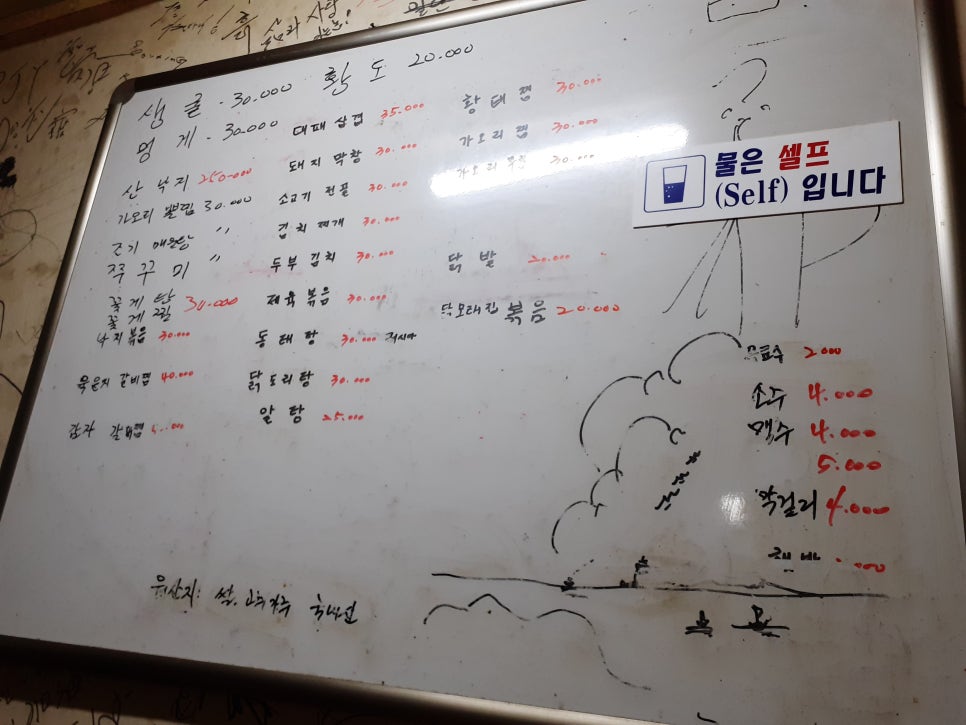 생굴 . 30.000 황도 20.000
멍게 . 30.000
산낙지 250.000
가오리 30.000
조기 매운탕 〃
쭈꾸미 〃
꽃게탕 30.000
꽃게찜
낙지볶음 30.000
묵은지 갈비찜 40.000
감자 갈비찜
대패삼겹 35.000
돼지 막창 30.000
소고기 전골 30.000
김치찌개 30.000
두부김치 30.000
제육볶음 30.000
동태탕 30.000
닭도리탕 30.000
알탕 25.000
황태찜 30.000
가오리찜 30.000
가오리 30.000
닭발 20.000
닭모래집 볶음 20.000
물은 셀프
(Self) 입니다
음료수 2000
소주 4.000
맥수 4.000
5.000
막걸리 4.000
원산지: 쌀. 고추가루 국내산